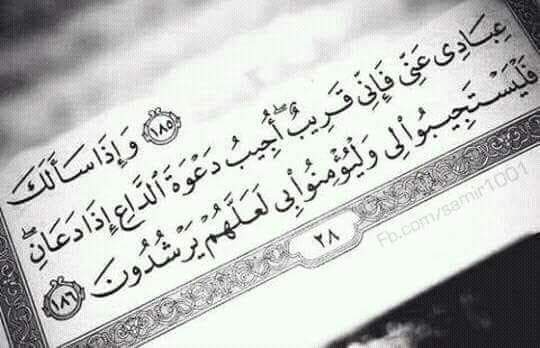 ١٨٥ وَإِذَا سَأَلَكَ
عِبَادِى عَنِّى فَإِنِّى قَرِيبٌ ۖ أُجِيبُ دَعْوَةَ ٱلدَّاعِ إِذَا دَعَانِ ۖ
فَلْيَسْتَجِيبُوا۟ لِى وَلْيُؤْمِنُوا۟ بِى لَعَلَّهُمْ يَرْشُدُونَ ١٨٦
٢٨
Fb.com/samir1001